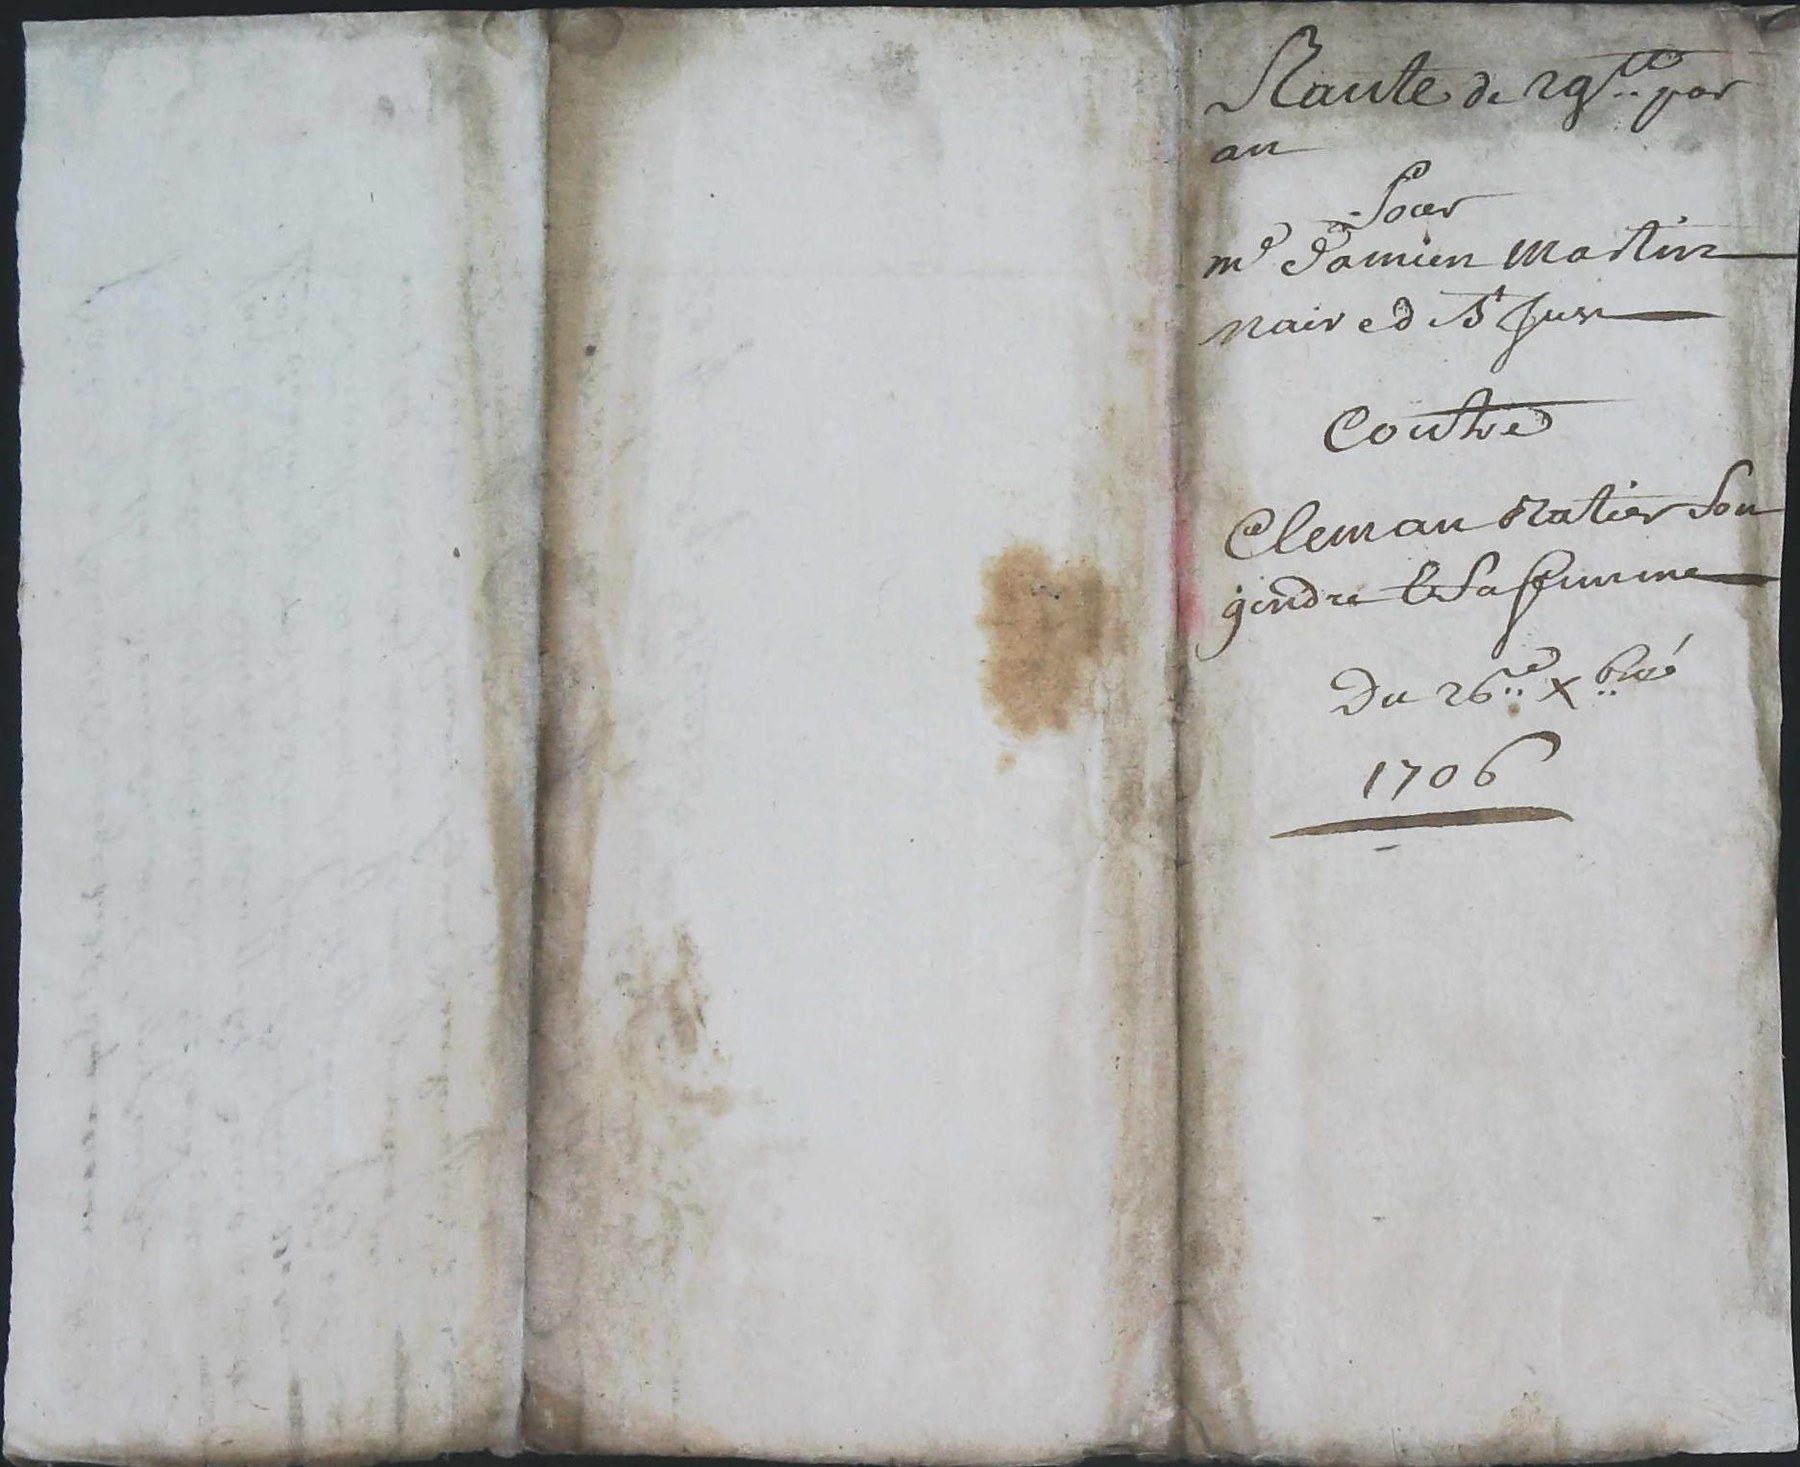 Rante de 29 tt par
an
Pour
me Damien Martin
naire de St Jux
Contre
Cleman Ratier son
gendre & sa femme
Du 26e xbre
1706